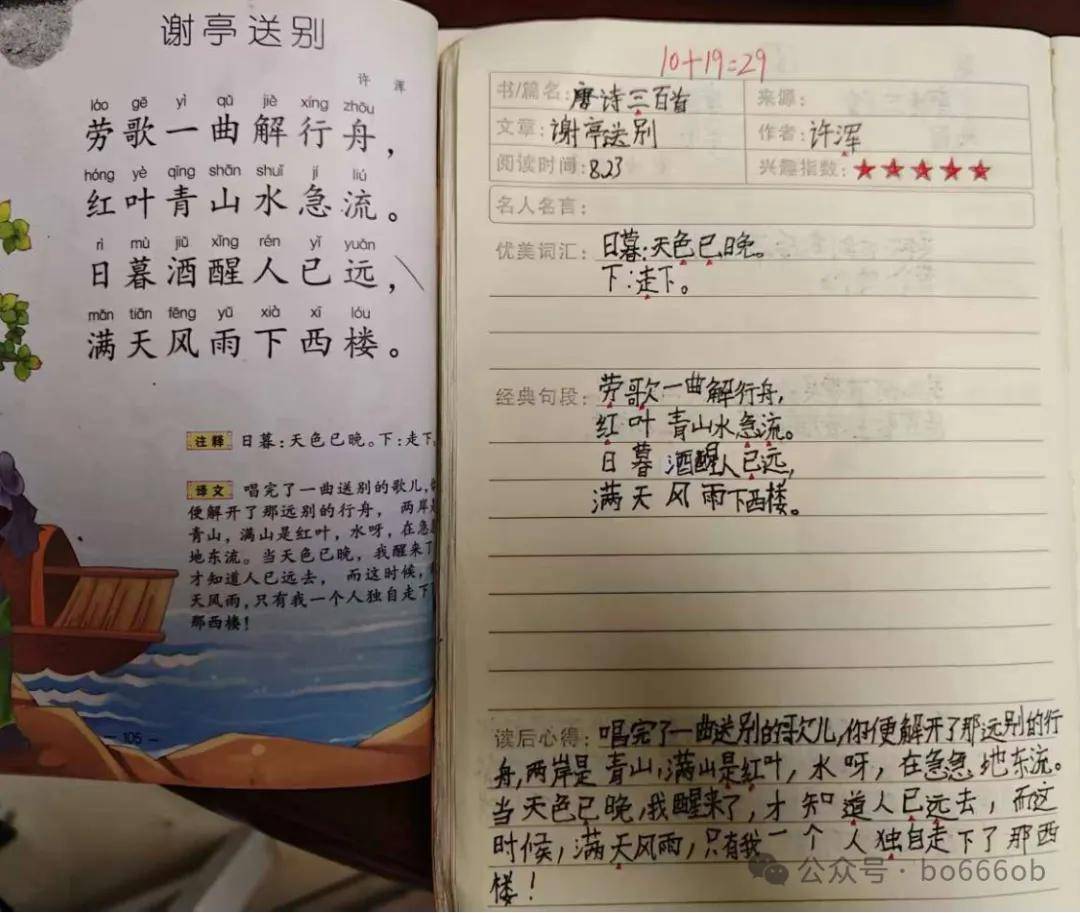 谢亭送别
许浑
láo gē yì qǔ jiě xíng zhōu
劳歌一曲解行舟，
hóng yè qīng shān shuǐ jí liú
红叶青山水急流。
rì mù jiǔ xǐng rén yǐ yuǎn
日暮酒醒人已远，
mǎn tiān fēng yǔ xià xī lóu
满天风雨下西楼。
注释 日暮：天色已晚。下：走下。
译文 唱完了一曲送别的歌儿，
便解开了那远别的行舟，两岸是
青山，满山是红叶，水呀，在急
地东流。当天色已晚，我醒来了
才知道人已远去，而这时候，
天风雨，只有我一个人独自走下
那西楼！
105
10+19=29
书/篇名：唐诗三百首 来源：
文章：谢亭送别 作者：许浑
阅读时间：8.23 兴趣指数：★★★★★
名人名言：
优美词汇：日暮：天色已晚。
下：走下。
经典句段：劳歌一曲解行舟，
红叶青山水急流。
日暮酒醒人已远，
满天风雨下西楼。
读后心得：唱完了一曲送别的歌儿，你便解开了那远别的行
舟，两岸是青山，满山是红叶，水呀，在急急地东流。
当天色已晚，我醒来了，才知道人已远去，而这
时候，满天风雨，只有我一个人独自走下了那西
楼！
公众号·bo666ob